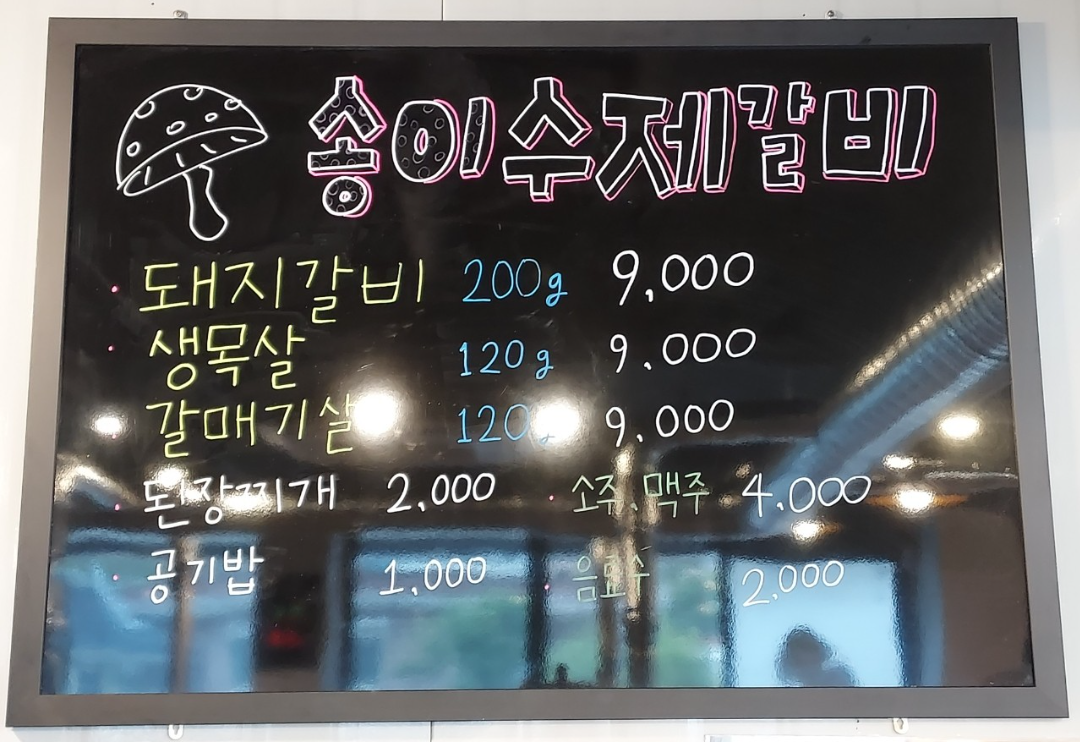 송이수제갈비
돼지갈비 200g 9,000
생목살 120g 9,000
갈매기살 120g 9,000
된장찌개 2,000 소주, 맥주 4,000
공기밥 1,000 음료수 2,000